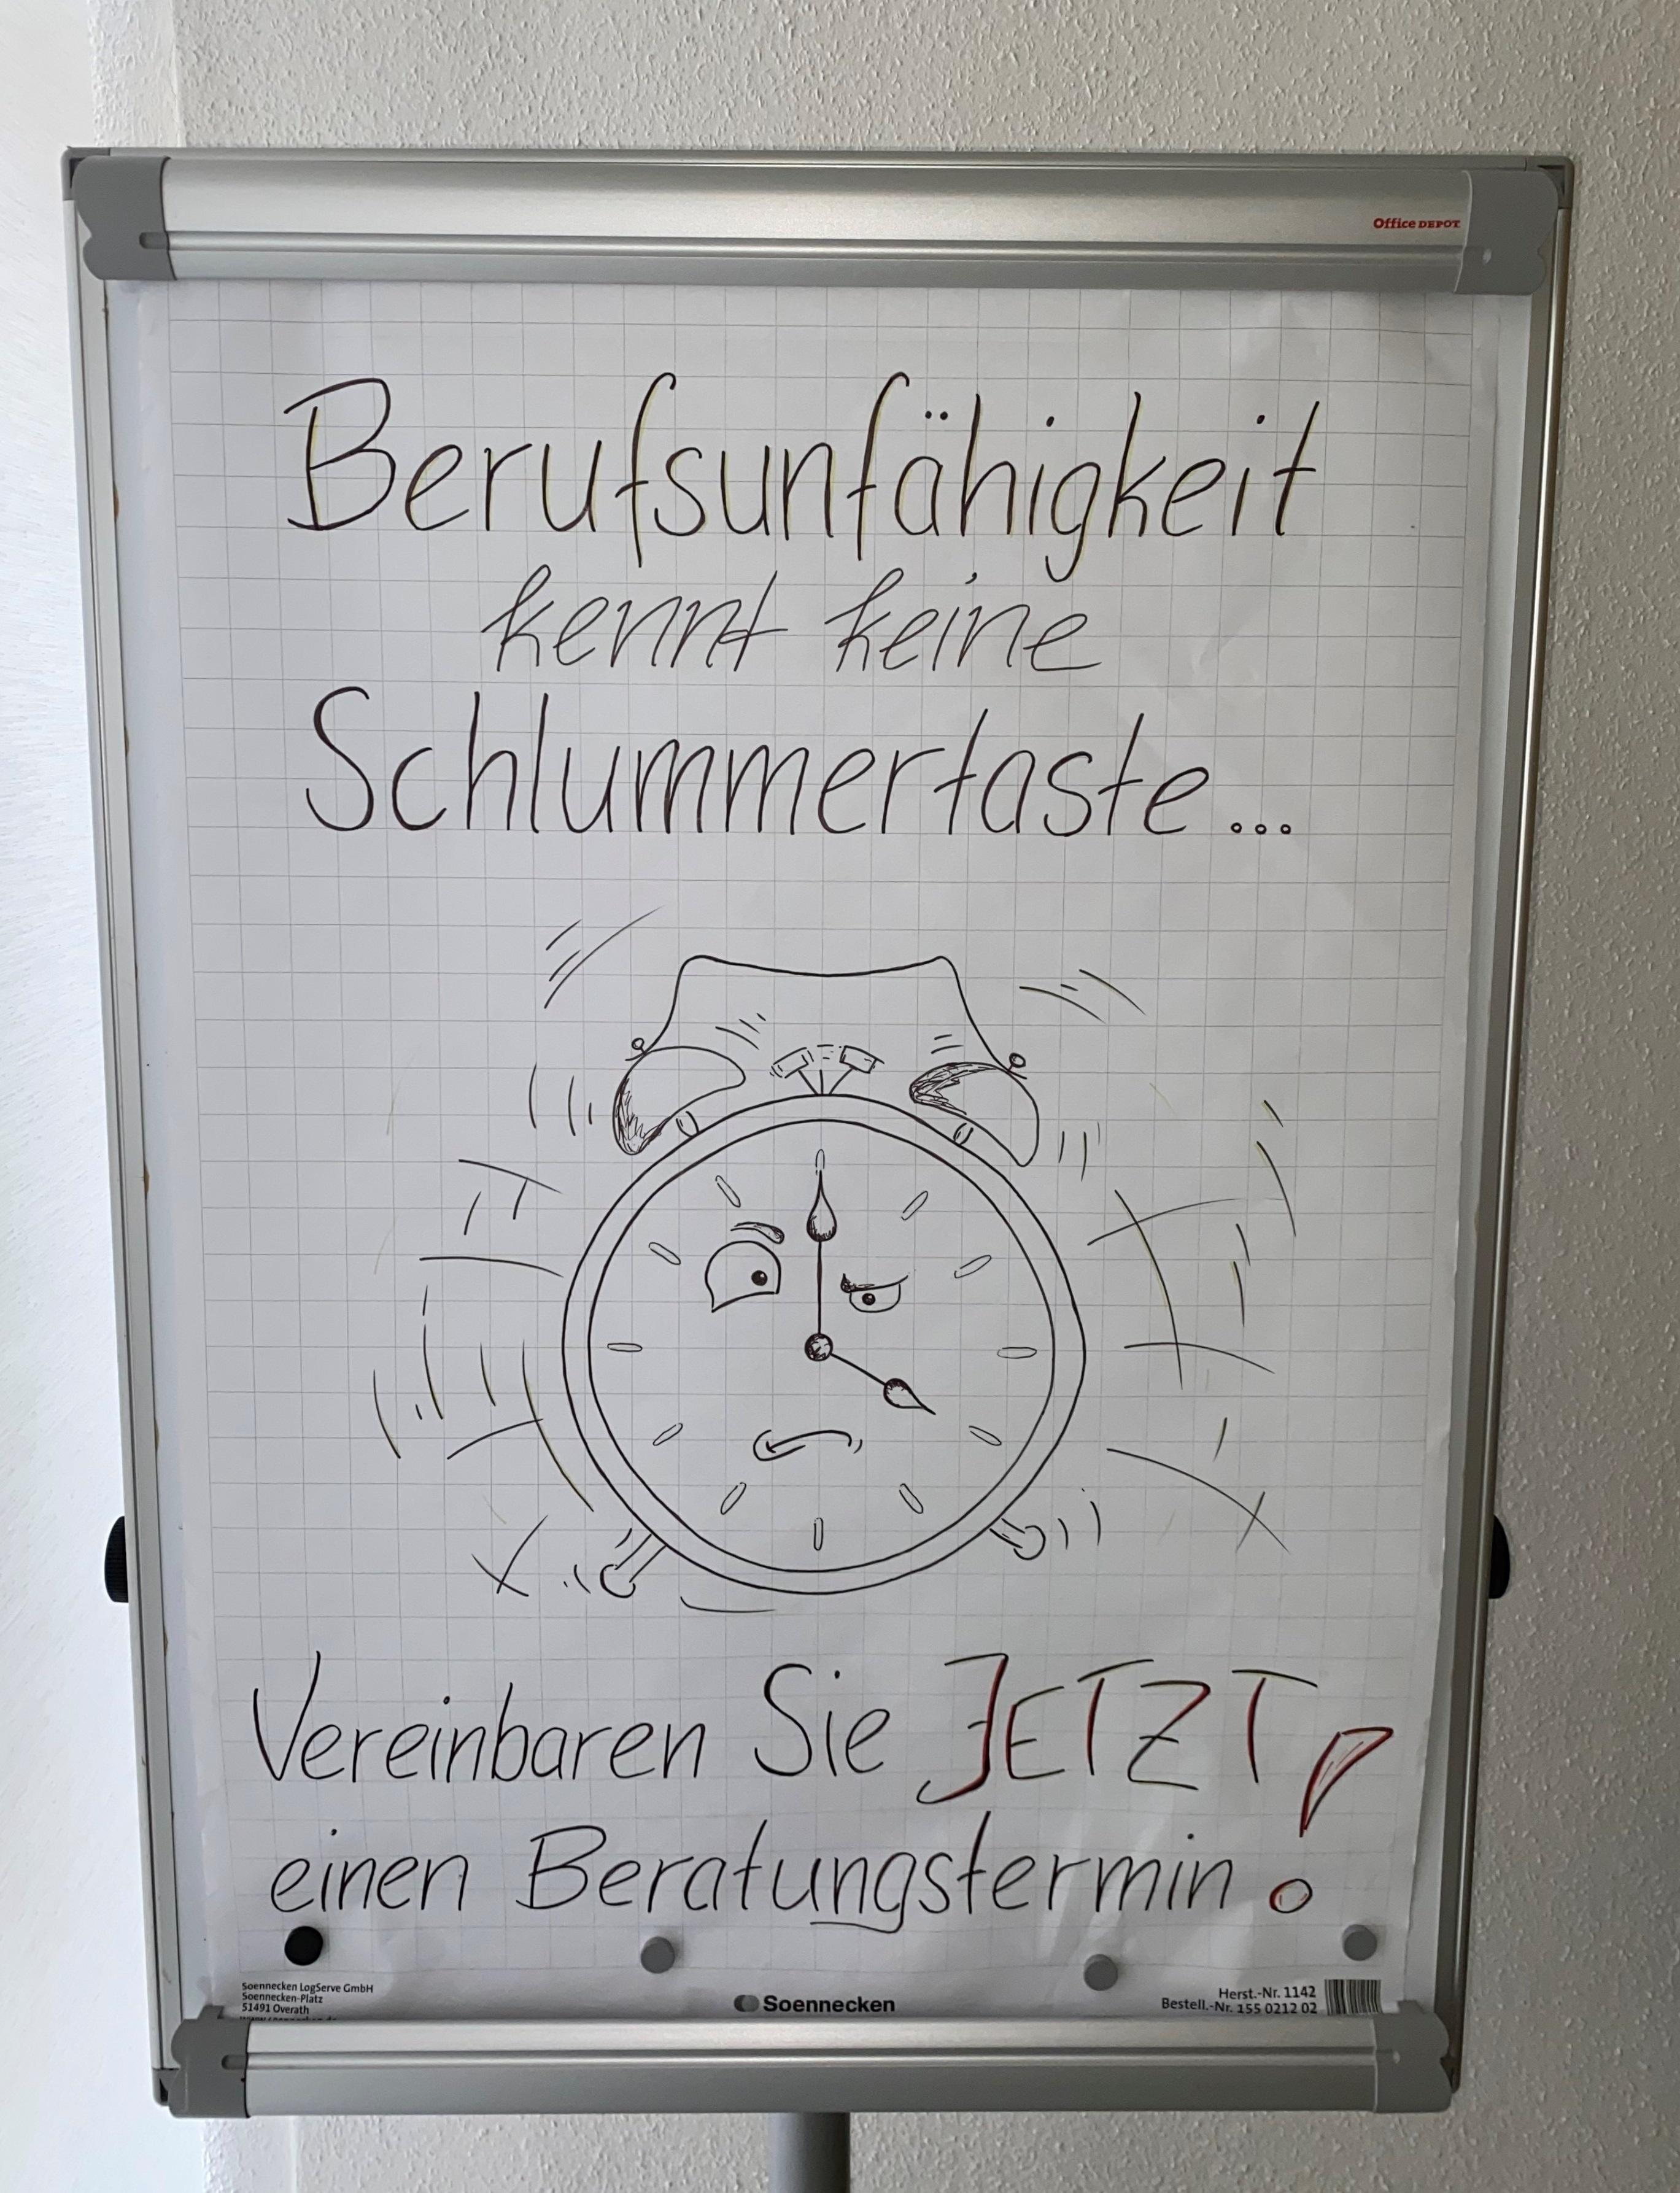 Office DEPOT
Berufsunfähigkeit
kennt keine
Schlummertaste...
Vereinbaren Sie JETZT!
einen Beratungstermin
Soennecken LogServe GmbH
Soennecken-Platz
51491 Overath
Soennecken
Herst.-Nr. 1142
Bestell.-Nr. 155 0212 02